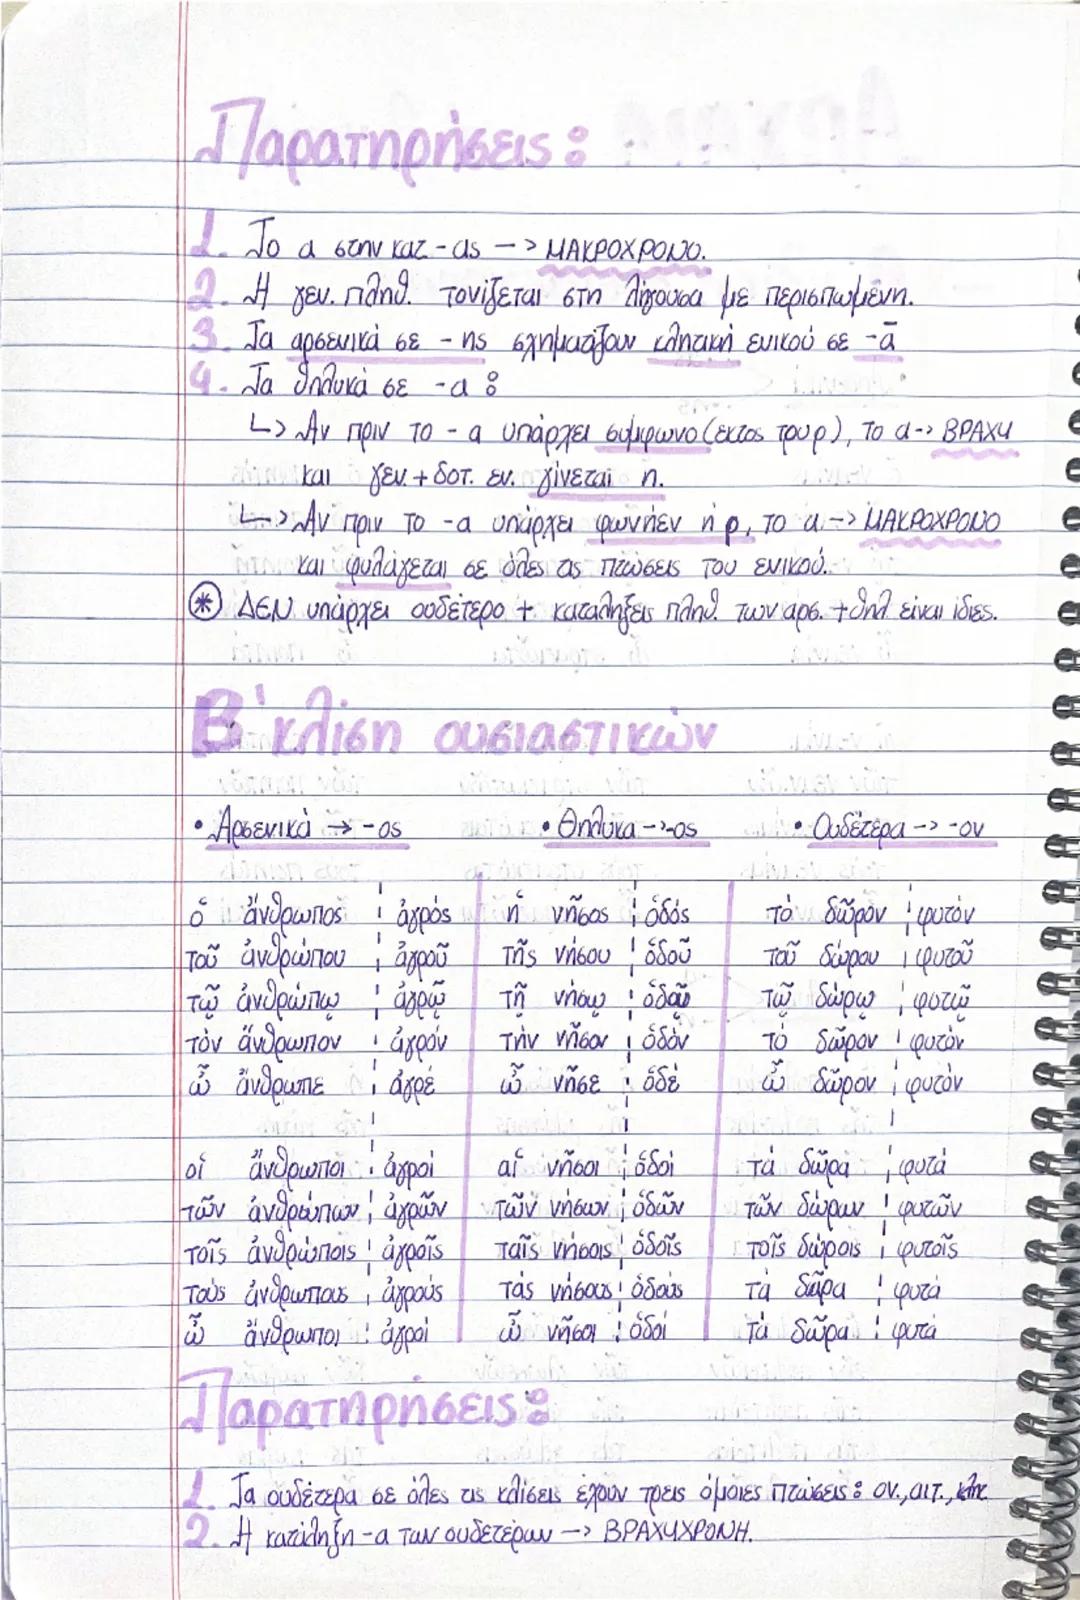 Παρατηρήσεις:
1. Το α στην κατ -ας -> ΜΑΚΡΟΧΡΟΝΟ.
2. Η γεν. πληθ. τονίζεται στη λήγουσα με περισπωμένη.
3. Τα αρσενικά σε -ης σχηματίζουν κλητική ενικού σε -ᾱ
4. Τα θηλυκά σε -α:
↳ Αν πριν το -α υπάρχει σύμφωνο (εκτός του ρ), το α -> ΒΡΑΧΥ
και γεν. + δοτ. εν. γίνεται η.
↳ Αν πριν το -α υπάρχει φωνήεν ή ρ, το α -> ΜΑΚΡΟΧΡΟΝΟ
και φυλάγεται σε όλες τις πτώσεις του ενικού.
* ΔΕΝ υπάρχει ουδέτερο + καταλήξεις πληθ. των αρσ. + θηλ. είναι ίδιες.
Β' κλίση ουσιαστικών
• Αρσενικά -> -ος • Θηλυκά -> -ος • Ουδέτερα -> -ον
ὁ ἄνθρωπος ¦ ἀγρός ἡ νῆσος ¦ ὁδός τὸ δῶρον ¦ φυτόν
τοῦ ἀνθρώπου ¦ ἀγροῦ τῆς νήσου ¦ ὁδοῦ τοῦ δώρου ¦ φυτοῦ
τῷ ἀνθρώπῳ ¦ ἀγρῷ τῇ νήσῳ ¦ ὁδῷ τῷ δώρῳ ¦ φυτῷ
τὸν ἄνθρωπον ¦ ἀγρόν τὴν νῆσον ¦ ὁδόν τὸ δῶρον ¦ φυτόν
ὦ ἄνθρωπε ¦ ἀγρέ ὦ νῆσε ¦ ὁδέ ὦ δῶρον ¦ φυτόν
οἱ ἄνθρωποι ¦ ἀγροί αἱ νῆσοι ¦ ὁδοί τὰ δῶρα ¦ φυτά
τῶν ἀνθρώπων ¦ ἀγρῶν τῶν νήσων ¦ ὁδῶν τῶν δώρων ¦ φυτῶν
τοῖς ἀνθρώποις ¦ ἀγροῖς ταῖς νήσοις ¦ ὁδοῖς τοῖς δώροις ¦ φυτοῖς
τοὺς ἀνθρώπους ¦ ἀγρούς τὰς νήσους ¦ ὁδούς τὰ δῶρα ¦ φυτά
ὦ ἄνθρωποι ¦ ἀγροί ὦ νῆσοι ¦ ὁδοί τὰ δῶρα ¦ φυτά
Παρατηρήσεις:
1. Τα ουδέτερα σε όλες τις κλίσεις έχουν τρεις όμοιες πτώσεις: ον., αιτ., κλητ.
2. Η κατάληξη -α των ουδετέρων -> ΒΡΑΧΥΧΡΟΝΗ.